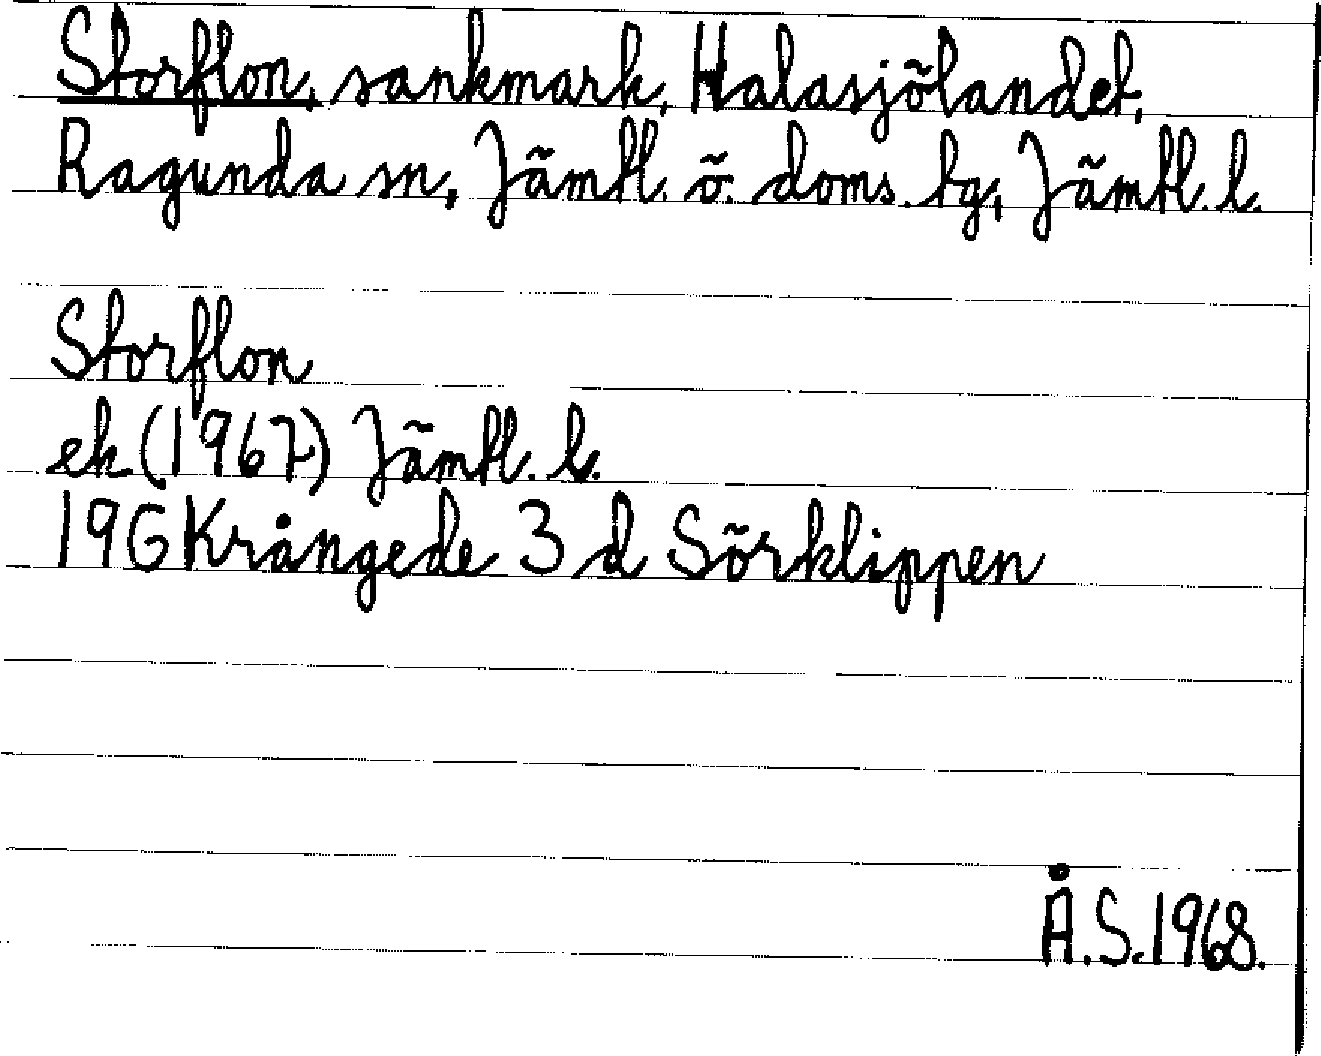 Storflon, sankmark, Halasjölandet,
Ragunda sn, Jämtl. ö. doms. tg, Jämtl. l.
Storflon
ek (1967) Jämtl. l.
19G Krångede 3 d Sörklippen
Å.S. 1968.